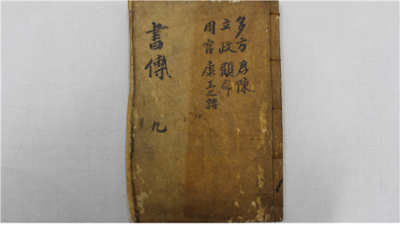 多方 君陳
立政 顧命
周官 康王之誥
書傳 九